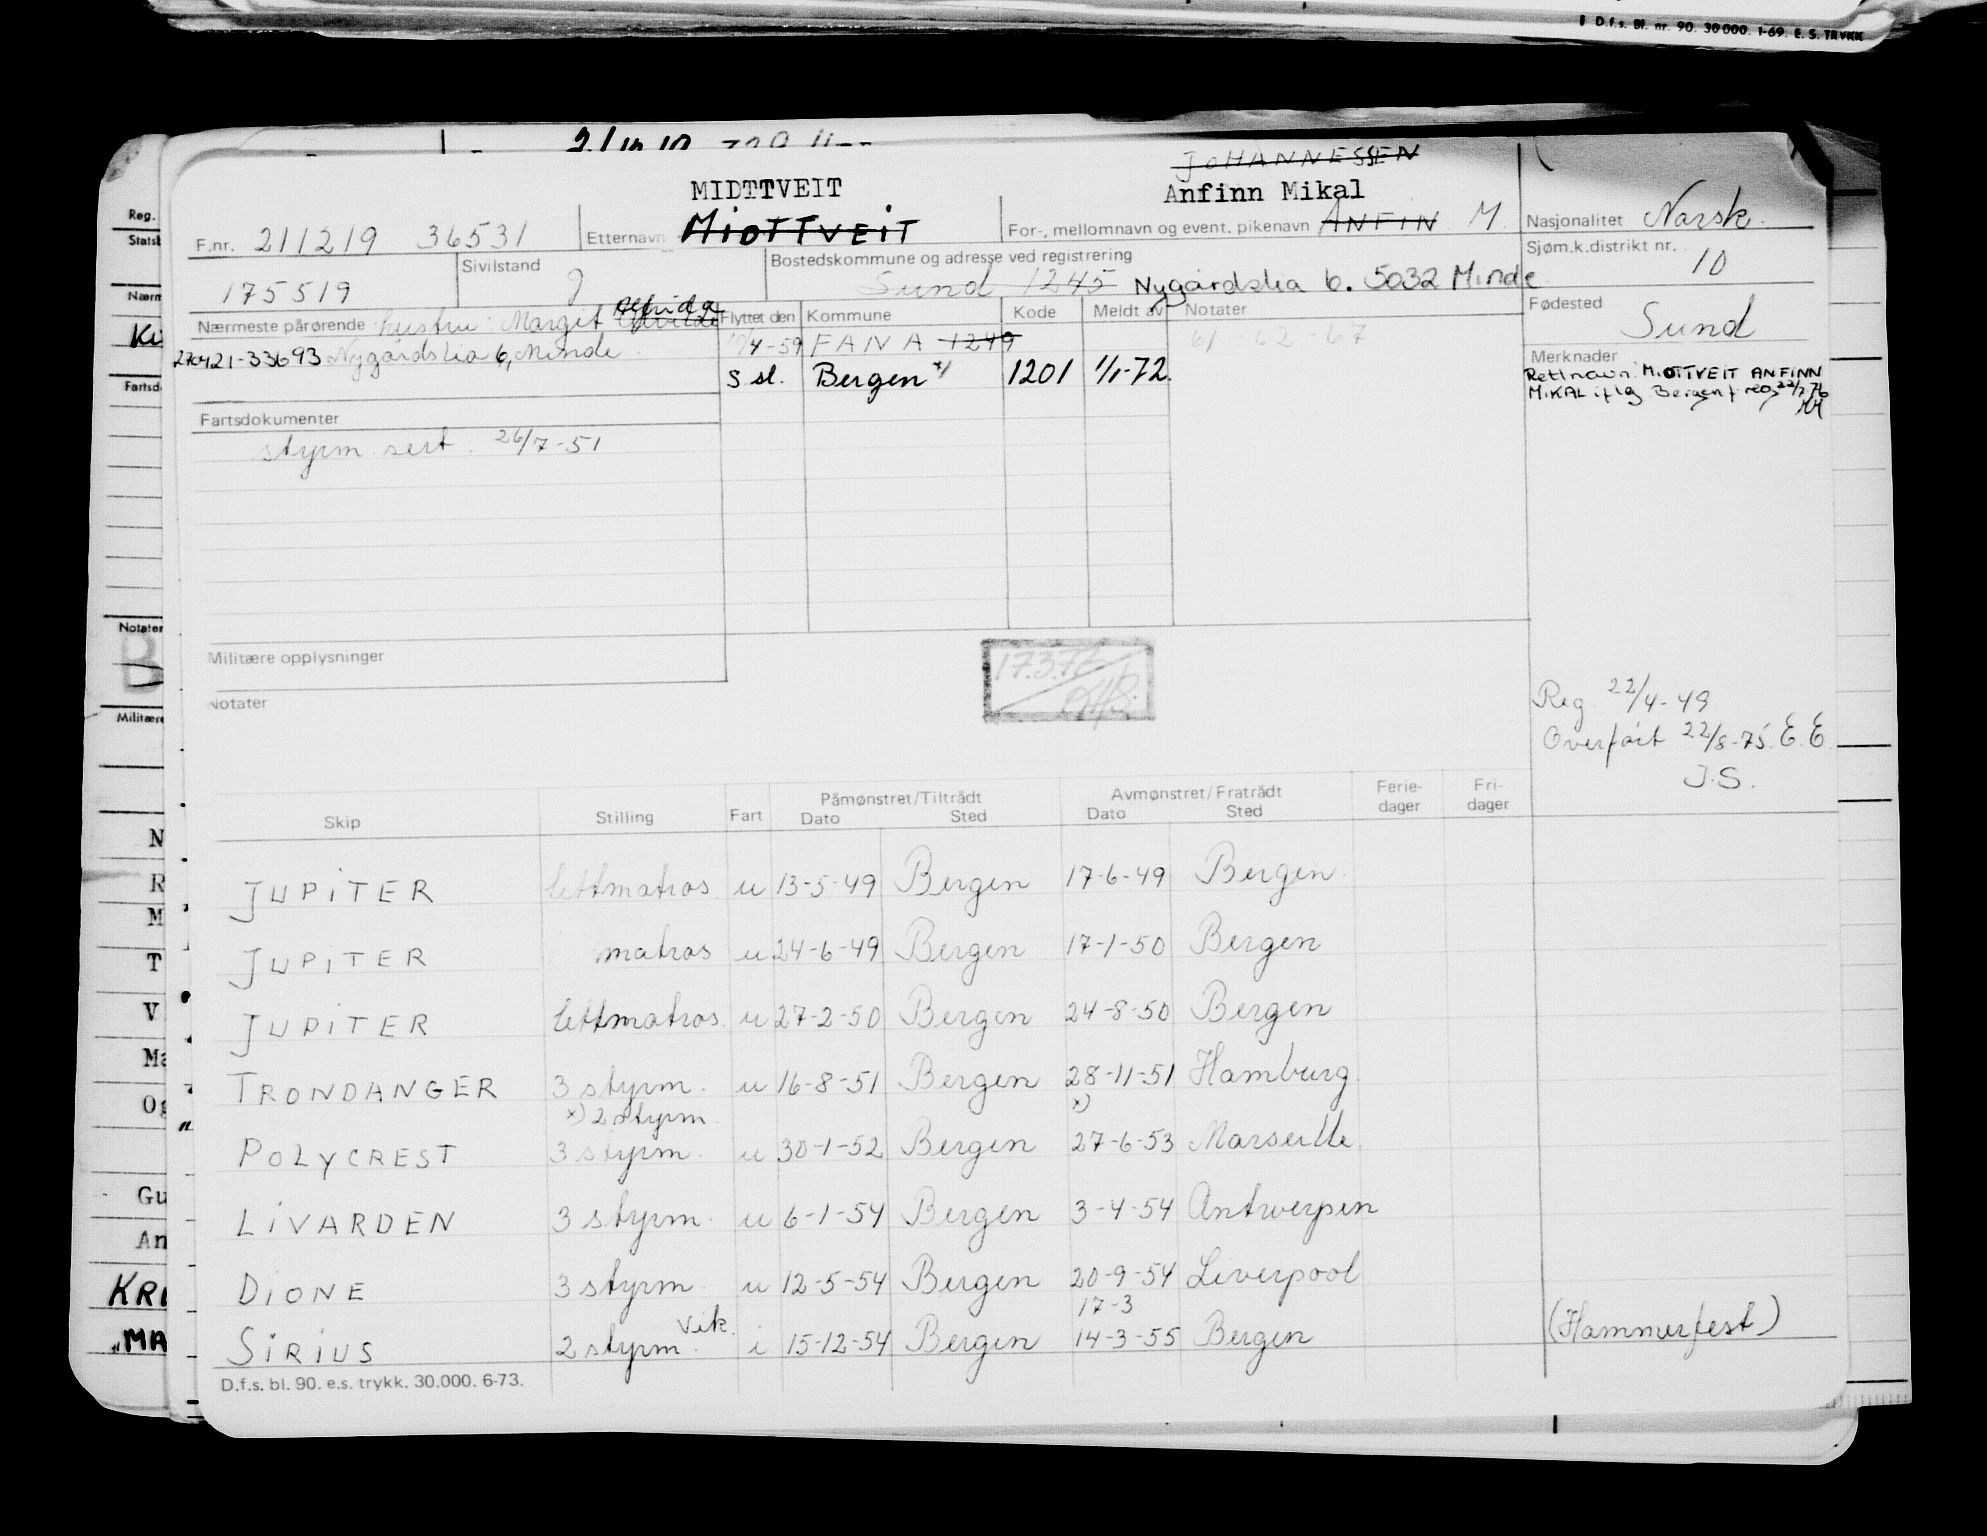 D.f.s. Bl. nr. 90. 30 000. 1-69. E. S. TRYKK
JOHANNESSEN
MIDTTVEIT Anfinn Mikal
F.nr. 211219 36531 Etternavn MIDTTVEIT For-, mellomnavn og event. pikenavn ANFIN M. Nasjonalitet Norsk.
175519 Sivilstand g Bostedskommune og adresse ved registrering Sund 1245 Nygårdslia 6. 5032 Minde Sjøm.k.distrikt nr. 10
Nærmeste pårørende hustru: Margit Alfrida
270421-33693 Nygårdslia 6, Minde.
Flyttet den Kommune Kode Meldt av Notater Fødested
4-59 FANA 1249 61-62-67 Sund
s sl. Bergen x) 1201 1/1-72.
Merknader
Rett navn: MIDTTVEIT ANFINN
MIKAL iflg Bergen f.reg 22/7 76
Fartsdokumenter
styrm. sert. 26/7-51
Militære opplysninger
17.3.77
Notater
Reg 22/4-49
Overført 22/8-75. E.E.
J.S.
Skip Stilling Fart Påmønstret/Tiltrådt Dato Sted Avmønstret/Fratrådt Dato Sted Ferie-dager Fri-dager
JUPITER lettmatros u 13-5-49 Bergen 17-6-49 Bergen
JUPITER matros u 24-6-49 Bergen 17-1-50 Bergen
JUPITER lettmatros u 27-2-50 Bergen 24-8-50 Bergen
TRONDANGER 3 styrm. u 16-8-51 Bergen 28-11-51 Hamburg.
x) 2 styrm. x)
POLYCREST 3 styrm. u 30-1-52 Bergen 27-6-53 Marseille.
LIVARDEN 3 styrm. u 6-1-54 Bergen 3-4-54 Antwerpen
DIONE 3 styrm. u 12-5-54 Bergen 20-9-54 Liverpool
Vik. 17-3
SIRIUS 2 styrm. i 15-12-54 Bergen 14-3-55 Bergen (Hammerfest)
D.f.s. bl. 90. e.s. trykk. 30.000. 6-73.
Reg.
Fartsd
Notater
B
Militære
N
R
M
T
V
Ma
Og
Gu
An
KRI
"MA